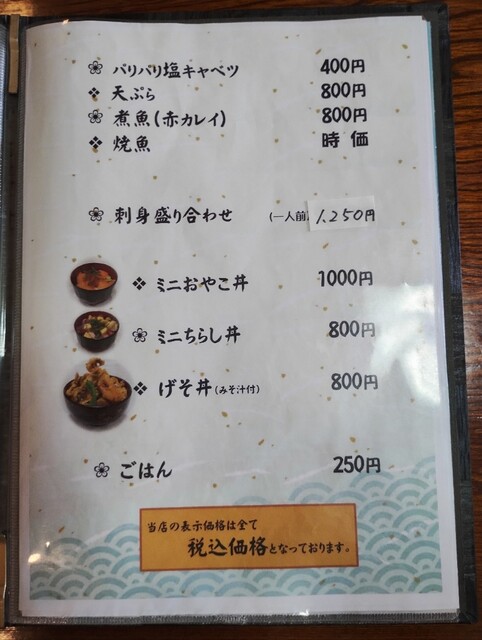 パリパリ塩キャベツ 400円
天ぷら 800円
煮魚(赤カレイ) 800円
焼魚 時価
刺身盛り合わせ (一人前) 1,250円
ミニおやこ丼 1000円
ミニちらし丼 800円
げそ丼(みそ汁付) 800円
ごはん 250円
当店の表示価格は全て
税込価格となっております。